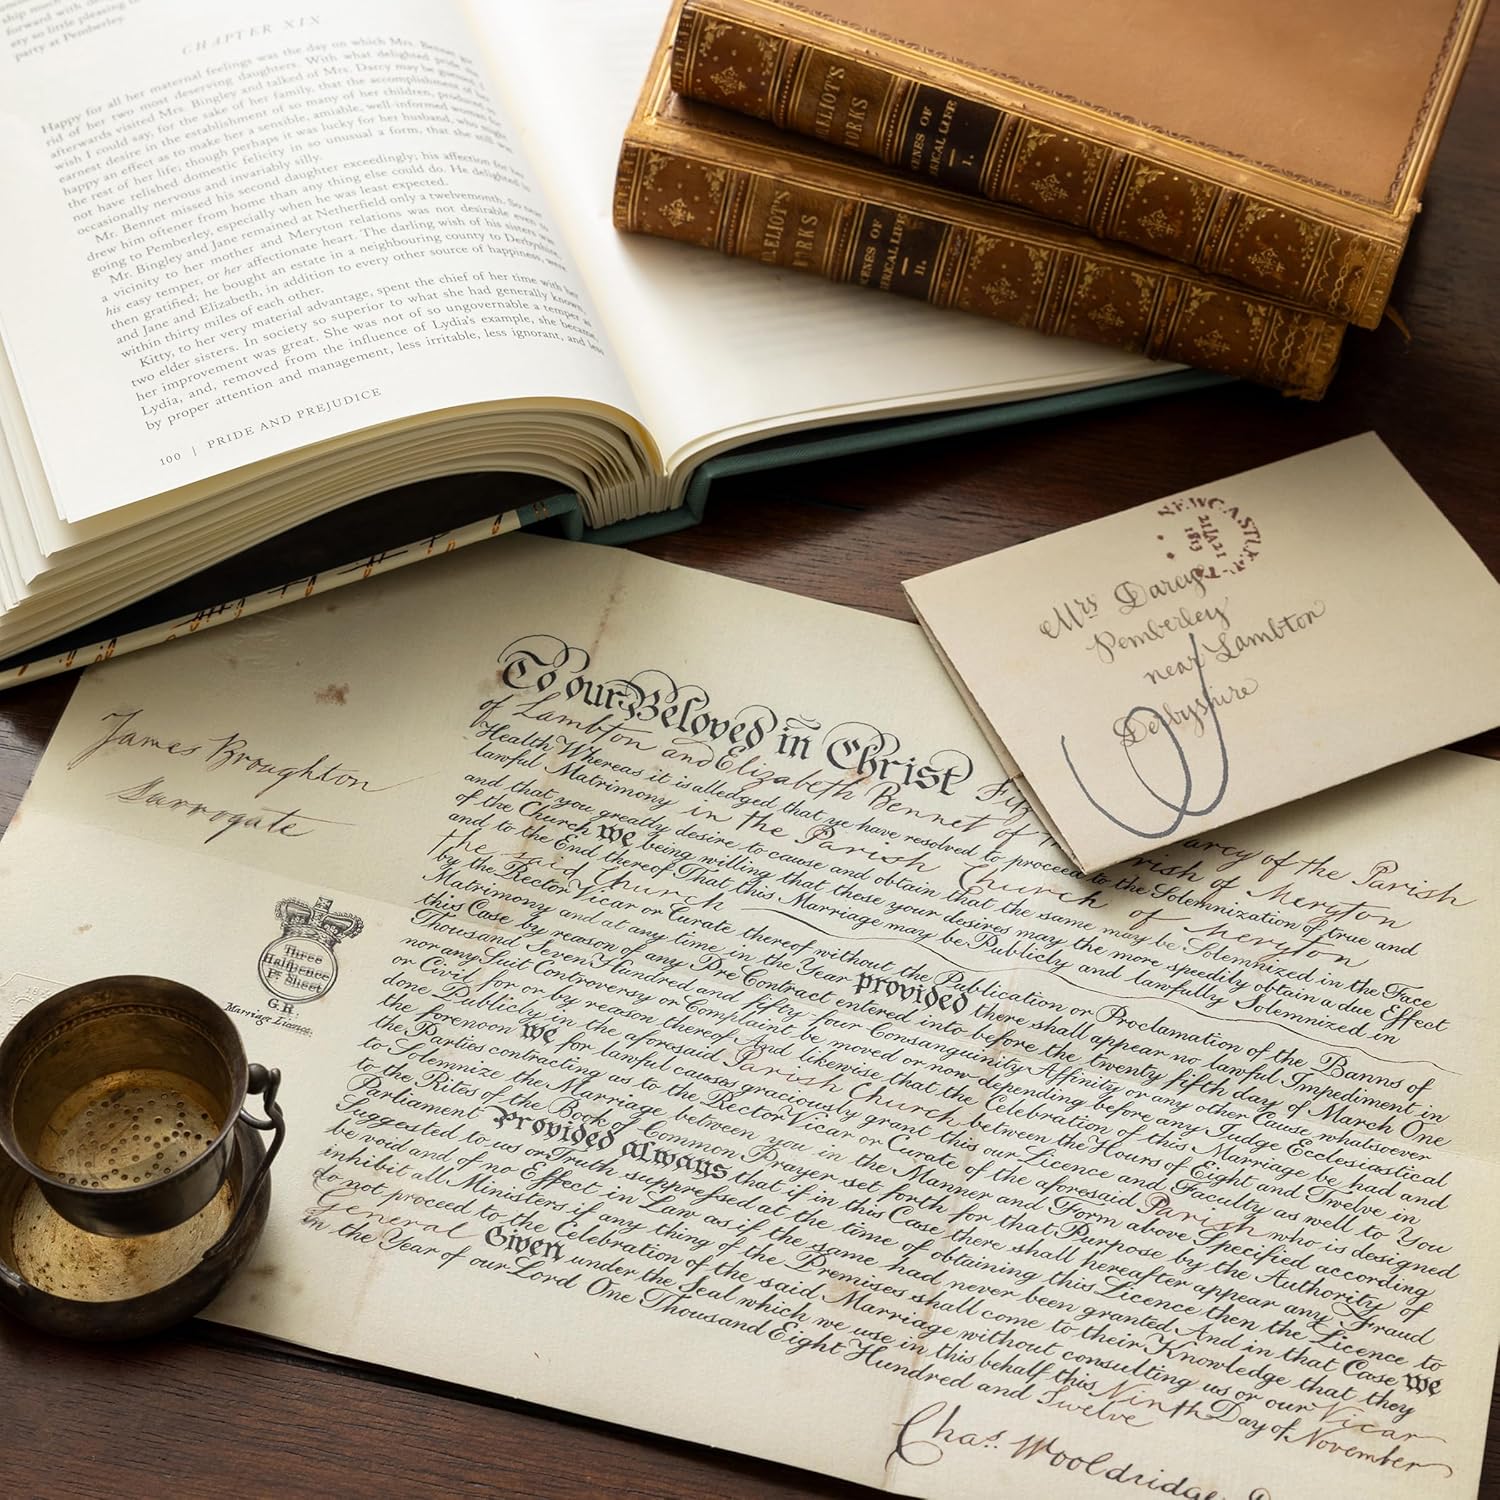 ship much
forward with
ery so little pleasing to
party at Pemberley.
CHAPTER XIX
Happy for all her maternal feelings was the day on which Mrs. Bennet got
rid of her two most deserving daughters. With what delighted pride she
afterwards visited Mrs. Bingley and talked of Mrs. Darcy may be guessed. I
wish I could say, for the sake of her family, that the accomplishment of
earnest desire in the establishment of so many of her children, produced
happy an effect as to make her a sensible, amiable, well-informed woman
the rest of her life; though perhaps it was lucky for her husband, who might
not have relished domestic felicity in so unusual a form, that she still was
occasionally nervous and invariably silly.
Mr. Bennet missed his second daughter exceedingly; his affection for her
drew him oftener from home than any thing else could do. He delighted in
going to Pemberley, especially when he was least expected.
Mr. Bingley and Jane remained at Netherfield only a twelvemonth. So near
a vicinity to her mother and Meryton relations was not desirable even to
his easy temper, or her affectionate heart. The darling wish of his sisters was
then gratified; he bought an estate in a neighbouring county to Derbyshire,
and Jane and Elizabeth, in addition to every other source of happiness, were
within thirty miles of each other.
Kitty, to her very material advantage, spent the chief of her time with her
two elder sisters. In society so superior to what she had generally known,
her improvement was great. She was not of so ungovernable a temper as
Lydia, and, removed from the influence of Lydia's example, she became,
by proper attention and management, less irritable, less ignorant, and less
100 | PRIDE AND PREJUDICE
ELIOT'S
WORKS
SCENES OF
CLERICAL LIFE
I.
ELIOT'S
WORKS
SCENES OF
CLERICAL LIFE
II.
NEWCASTLE
21 JA 21
1813
Mrs Darcy
Pemberley
near Lambton
Derbyshire
James Broughton
Surrogate
Three
Halfpence
Pr Sheet
G.R.
Marriage Licence.
To our Beloved in Christ Fitz Darcy of the Parish
of Lambton and Elizabeth Bennet of the Parish of Meryton
Health, Whereas it is alledged that ye have resolved to proceed to the Solemnization of true and
lawful Matrimony in the Parish Church of Meryton
and that you greatly desire to cause and obtain that the same may be Solemnized in the Face
of the Church We being willing that these your desires may the more speedily obtain a due Effect
and to the End thereof That this Marriage may be Publicly and lawfully Solemnized in
the said Church
by the Rector Vicar or Curate thereof without the Publication or Proclamation of the Banns of
Matrimony and at any time in the Year Provided there shall appear no lawful Impediment in
this Case by reason of any Pre Contract entered into before the twenty fifth day of March One
Thousand Seven Hundred and fifty four Consanguinity Affinity or any other Cause whatsoever
nor any Suit Controversy or Complaint be moved or now depending before any Judge Ecclesiastical
or Civil for or by reason thereof And likewise that the Celebration of this Marriage be had and
done Publicly in the aforesaid Parish Church between the Hours of Eight and Twelve in
the forenoon We for lawful causes graciously grant this our Licence and Faculty as well to You
the Parties contracting as to the Rector Vicar or Curate of the aforesaid Parish who is designed
to Solemnize the Marriage between you in the Manner and Form above Specified according
to the Rites of the Book of Common Prayer set forth for that Purpose by the Authority of
Parliament Provided always that if in this Case there shall hereafter appear any Fraud
Suggested to us or Truth suppressed at the time of obtaining this Licence then the Licence to
be void and of no Effect in Law as if the same had never been granted And in that Case We
inhibit all Ministers if any thing of the Premises shall come to their Knowledge that they
do not proceed to the Celebration of the said Marriage without consulting us or our Vicar
General Given under the Seal which we use in this behalf this Ninth Day of November
in the Year of our Lord One Thousand Eight Hundred and Twelve
Chas. Wooldridge